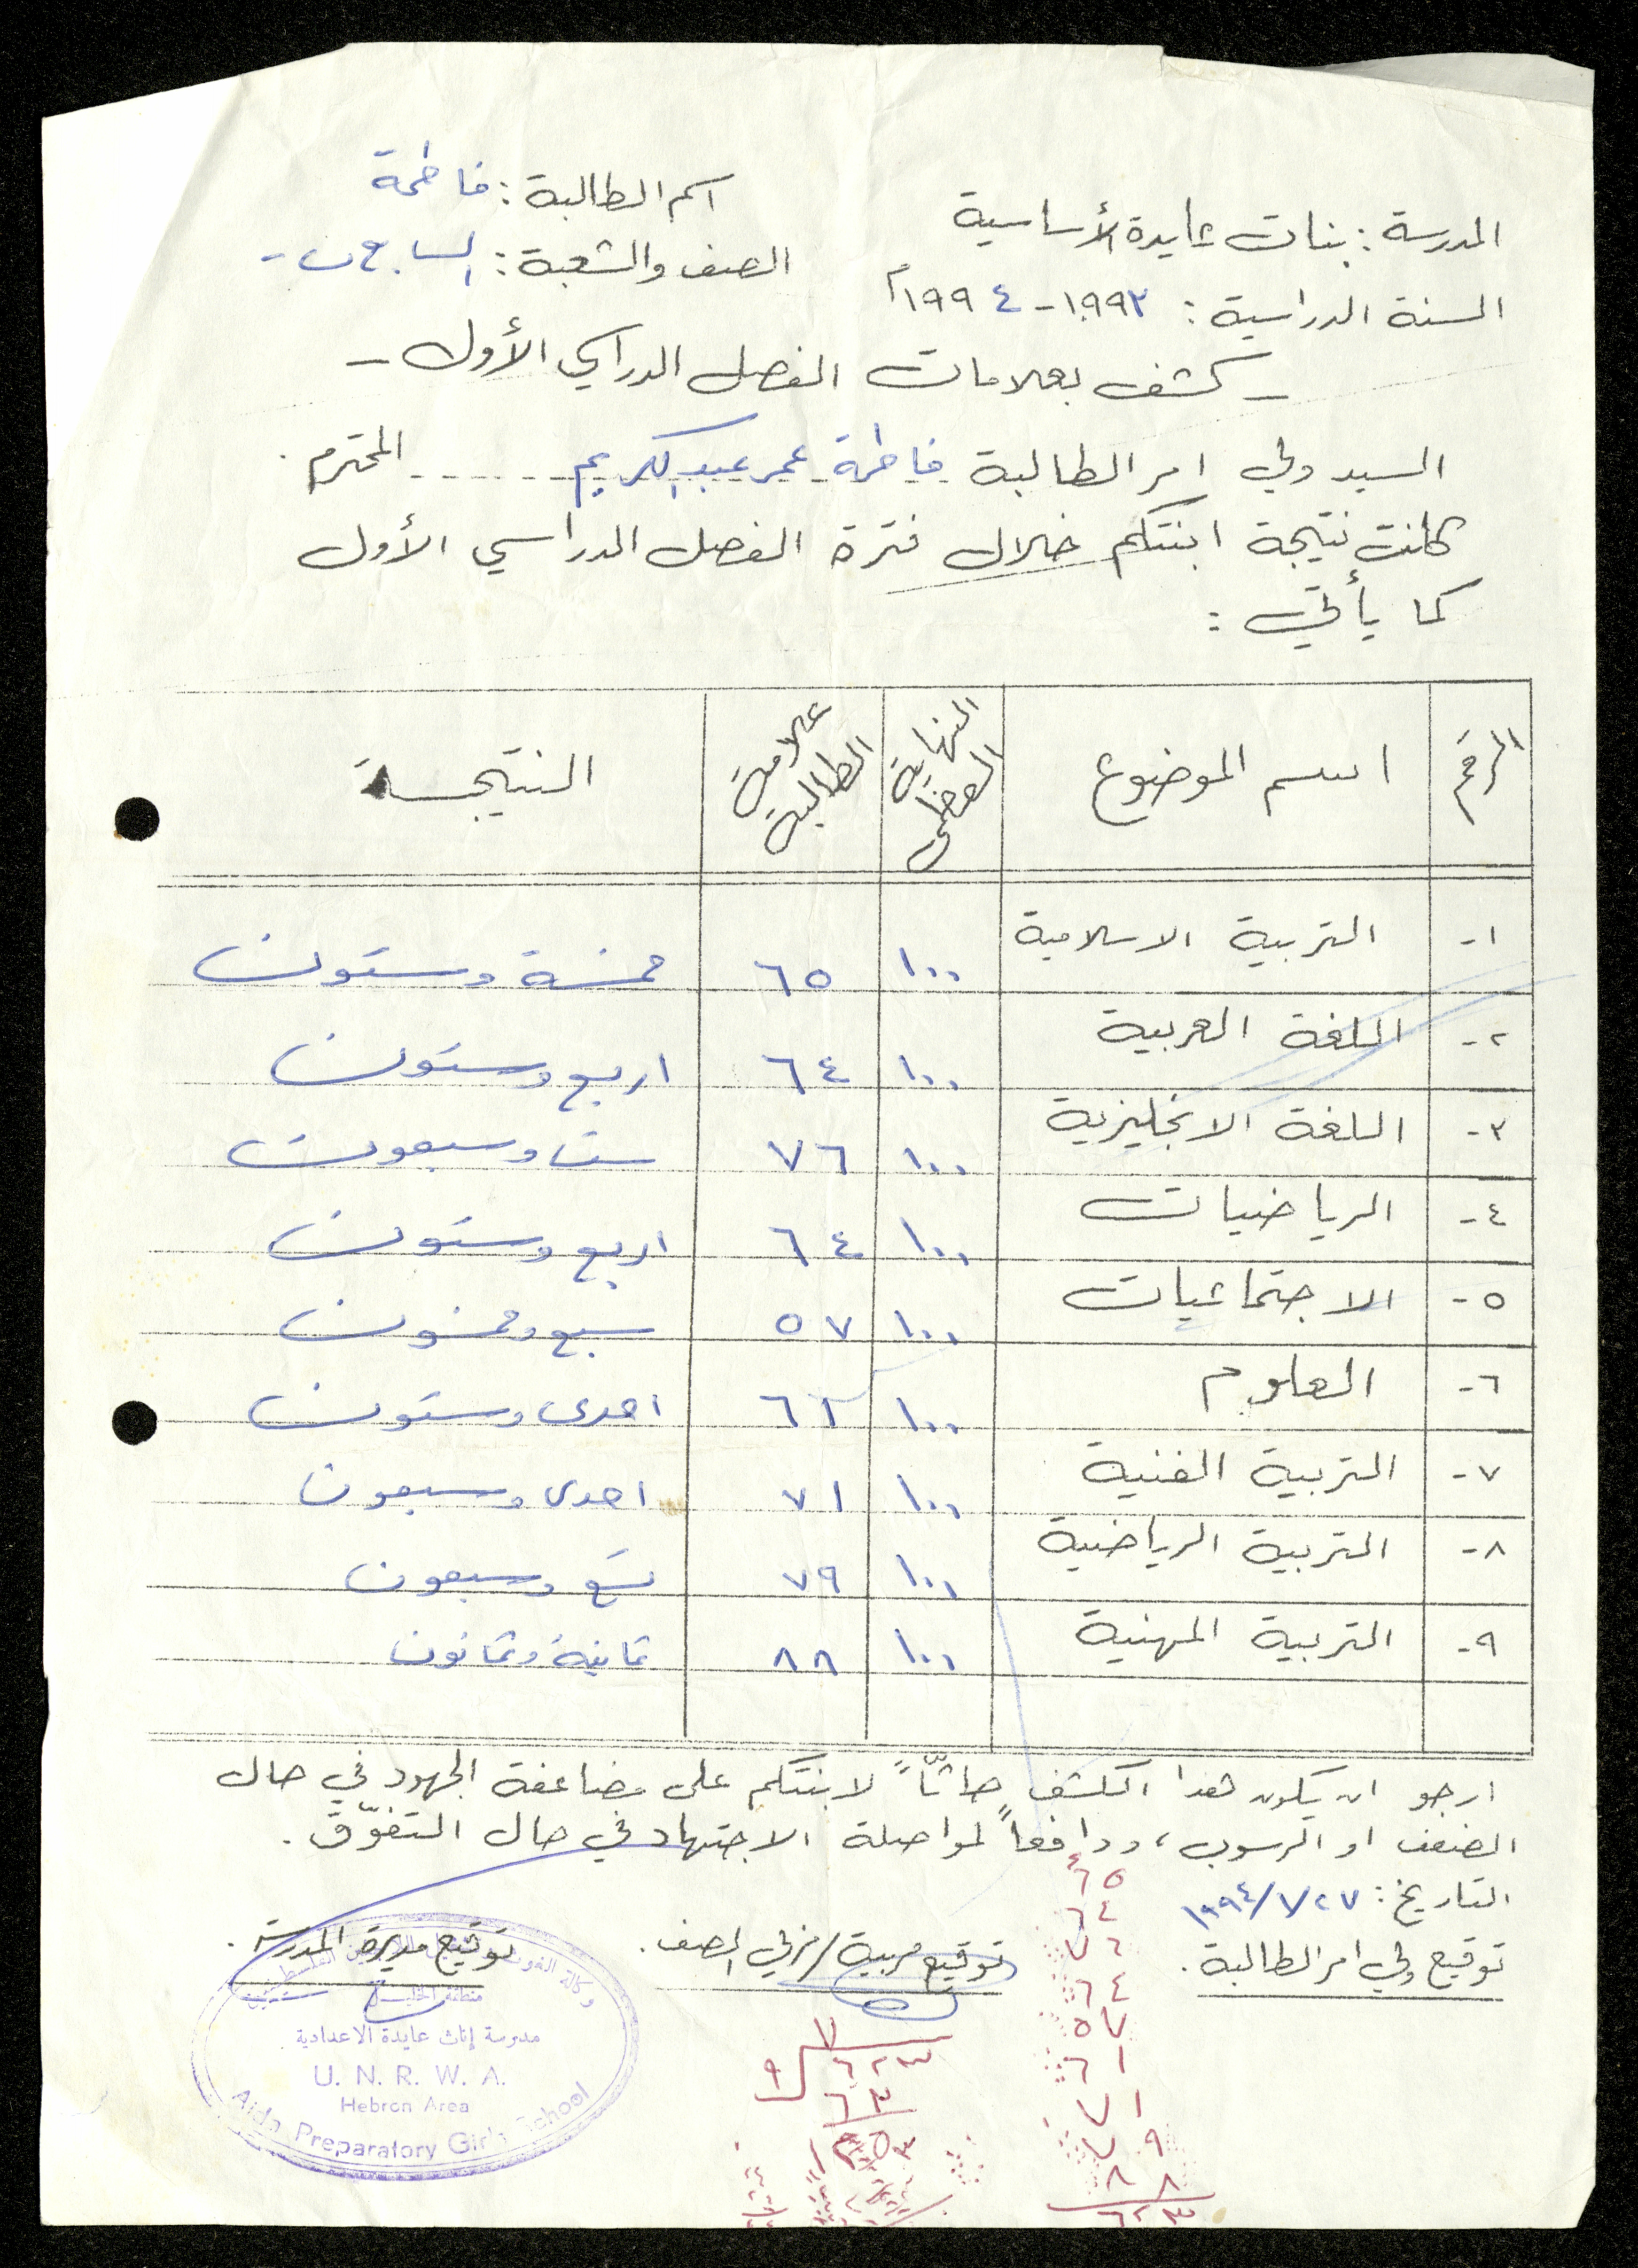 المدرسة : بنات عايدة الأساسية
اسم الطالبة : فاطمة
السنة الدراسية : ١٩٩٣ - ١٩٩٤م
الصف والشعبة : السابع ب -
- كشف بعلامات الفصل الدراسي الأول -
السيد ولي امر الطالبة فاطمة عمر عبد الكريم المحترم .
كانت نتيجة ابنتكم خلال فترة الفصل الدراسي الأول
كما يأتي :
الرقم | اسم الموضوع | النهاية العظمى | علامة الطالبة | النتيجة
١- التربية الاسلامية ١٠٠ ٦٥ خمسة وستون
٢- اللغة العربية ١٠٠ ٦٤ اربع وستون
٣- اللغة الانجليزية ١٠٠ ٧٦ ست وسبعون
٤- الرياضيات ١٠٠ ٦٤ اربع وستون
٥- الاجتماعيات ١٠٠ ٥٧ سبع وخمسون
٦- العلوم ١٠٠ ٦١ احدى وستون
٧- التربية الفنية ١٠٠ ٧١ احدى وسبعون
٨- التربية الرياضية ١٠٠ ٧٩ تسع وسبعون
٩- التربية المهنية ١٠٠ ٨٨ ثمانية وثمانون
ارجو ان يكون هذا الكشف حاثّاً لابنتكم على مضاعفة الجهود في حال
الضعف او الرسوب ، ودافعاً لمواصلة الاجتهاد في حال التفوّق .
التاريخ : ١٩٩٤/١/٢٧
توقيع ولي امر الطالبة .
توقيع مربية / مربي الصف .
توقيع مديرة المدرسة .
منطقة الخليل
مدرسة إناث عايدة الاعدادية
U. N. R. W. A.
Hebron Area
Aida Preparatory Girl's School
٦٥
٦٤
٧٦
٦٤
٥٧
٦١
٧١
٧٩
٨٨
٦٢٣
٩
٦٢٣
٦٣